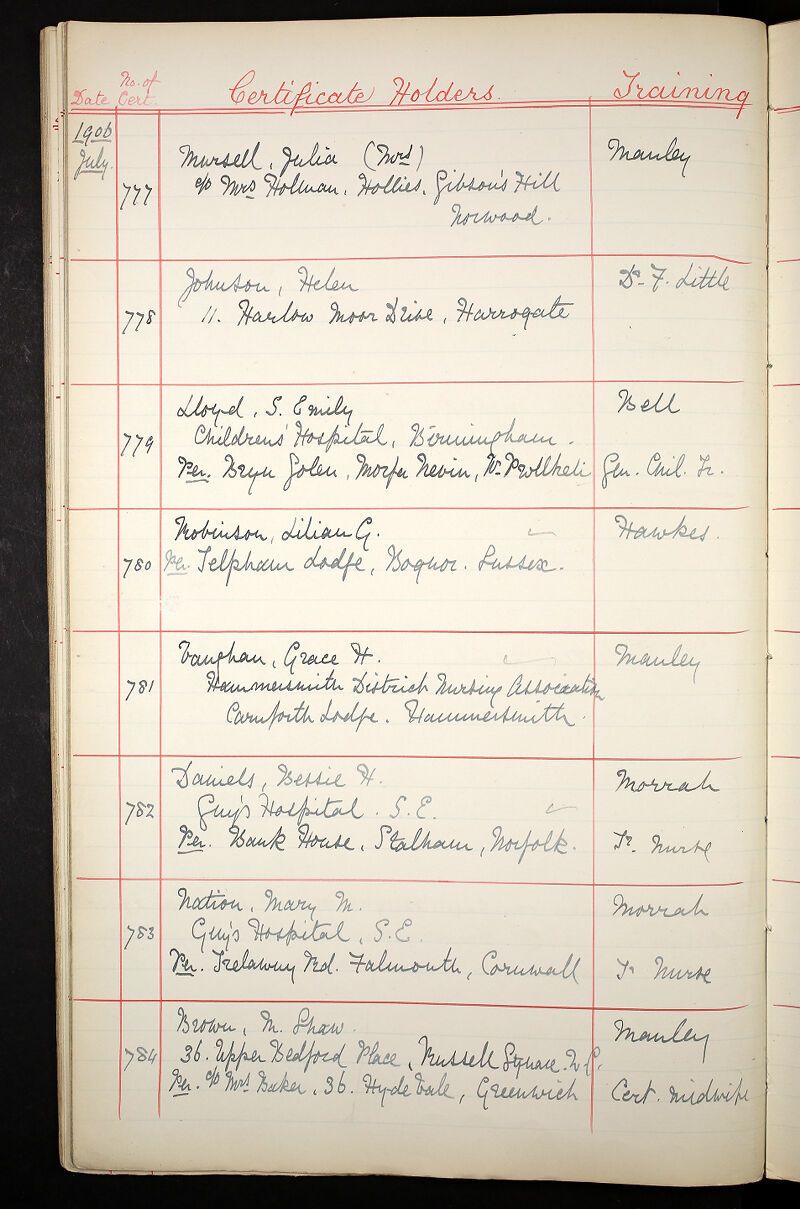 Date No. of Cert. Certificate Holders. Training
1906
July.
Mursell, Julia (Mrs) Manley
777 c/o Mrs Holman, Hollies, Gibson's Hill
Norwood.
Johnson, Helen Dr. F. Little
778 11. Harlow Moor Drive, Harrogate
Lloyd, S. Emily Bell
779 Childrens' Hospital, Birmingham.
Per. Bryn Golen, Morfa Nevin, Nr Pwllheli Gen. Chil. Tr.
Robinson, Lilian G. Hawkes.
780 Per. Felpham Lodge, Bognor. Sussex.
Vaughan, Grace H. Manley
781 Hammersmith District Nursing Association
Carnforth Lodge. Hammersmith.
Daniels, Bessie H. Morrah
782 Guy's Hospital. S.E.
Per. Bank House, Stalham, Norfolk. Tr. Nurse
Nation, Mary M. Morrah
783 Guy's Hospital, S.E.
Per. Trelawny Rd. Falmouth, Cornwall Tr Nurse
Brown, M. Shaw. Manley
784 36. Upper Bedford Place, Russell Square. W.C.
Per. c/o Mrs Baker, 36. Hyde Vale, Greenwich Cert. Midwife